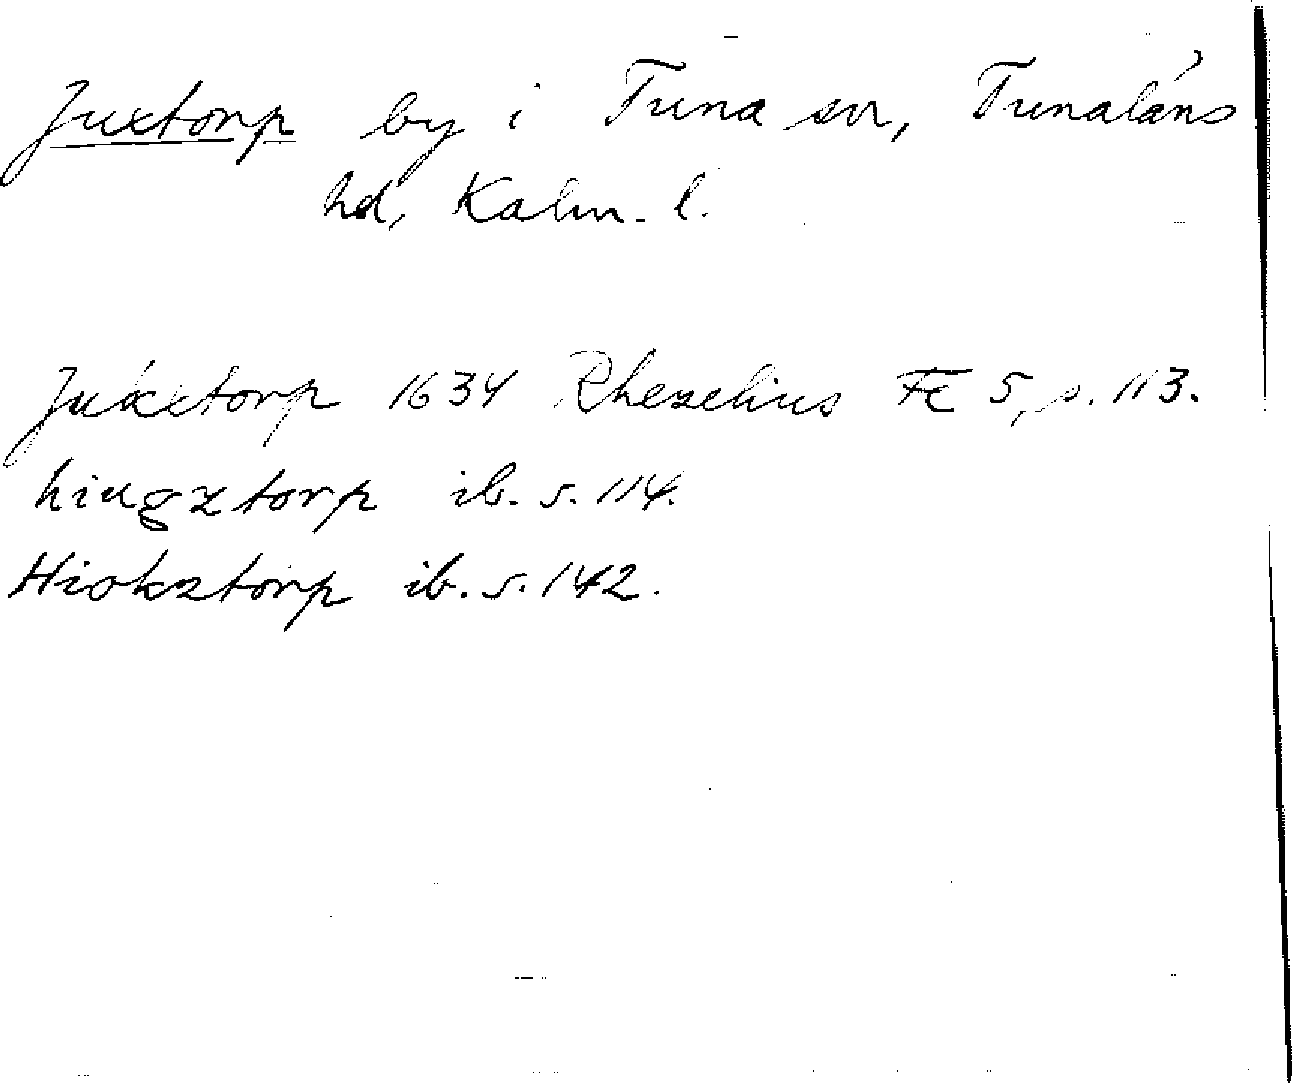 Juxtorp by i Tuna sn, Tunaläns
hd, Kalm. l.
Jukxtorp 1634 Rhezelius FE 5, s. 113.
hiugztorp ib. s. 114.
Hiokztorp ib. s. 142.